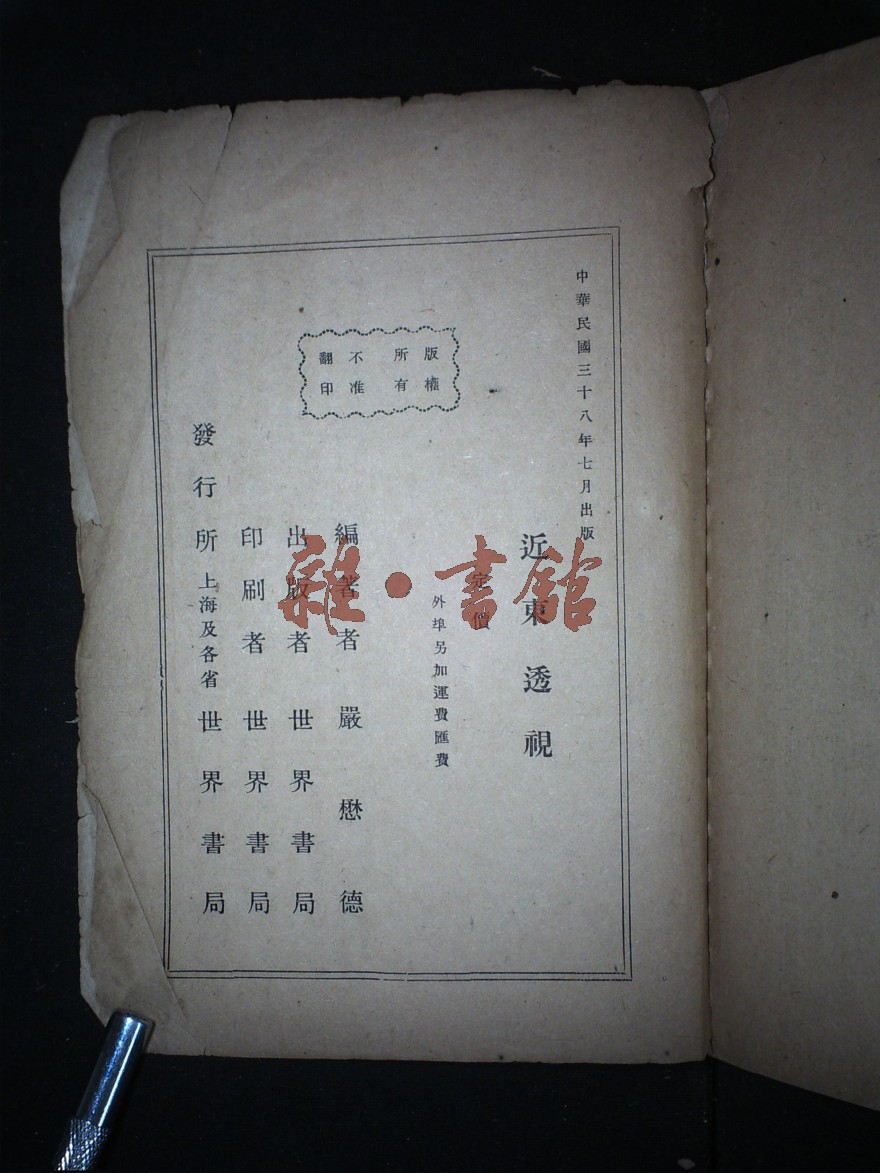 中華民國三十八年七月出版
近東透視
定價
外埠另加運費匯費
版權所有
不准翻印
編著者 嚴懋德
出版者 世界書局
印刷者 世界書局
發行所 上海及各省 世界書局
雜·書館